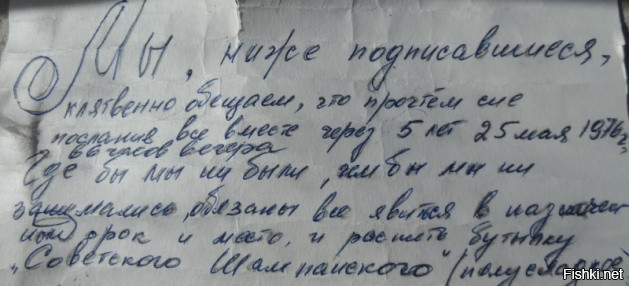 Мы, ниже подписавшиеся,
клятвенно обещаем, что прочтём сие
послание все вместе через 5 лет 25 мая 1976 г.
в 6 часов вечера
Где бы мы ни были, чем бы мы ни
занимались, обязаны все явиться в назначен
ный срок и место, и распить бутылку
"Советского Шампанского" (полусладкое
Fishki.net